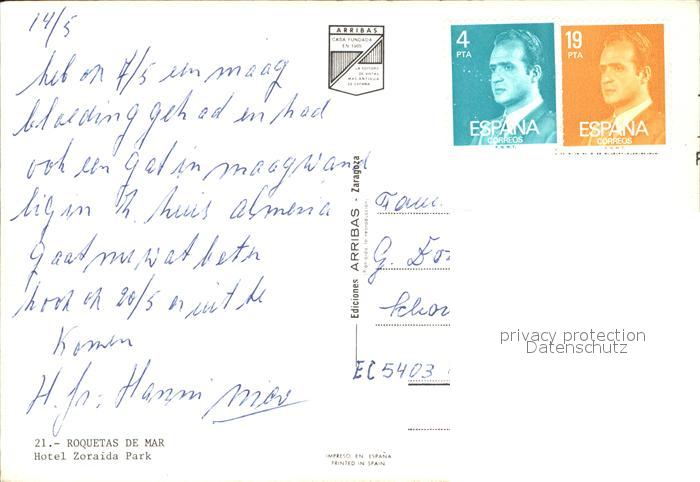 14/5
heb op 7/5 een maag
bloeding gehad en had
ook een gat in maagwand
lig in 't. huis Almeria
gaat nu wat beter
hoop op 20/5 er uit te
komen
H. Gr. Hanni
ARRIBAS
CASA FUNDADA
EN 1905
LA EDITORA
DE VISTAS
MAS ANTIGUA
DE ESPAÑA
4
PTA
ESPAÑA
CORREOS
F.N.M.T.
19
PTA
ESPAÑA
CORREOS
F.N.M.T.
Ediciones ARRIBAS - Zaragoza
Prohibida la reproducción
Fam.
G.
EC 5403
privacy protection
Datenschutz
21.- ROQUETAS DE MAR
Hotel Zoraida Park
IMPRESO EN ESPAÑA
PRINTED IN SPAIN